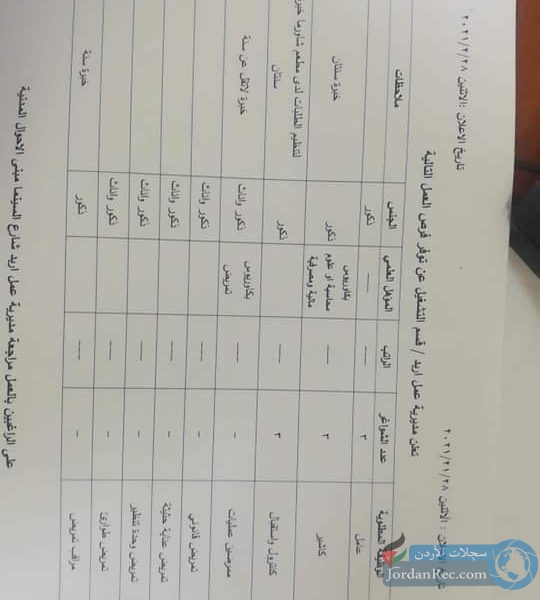 تاريخ الاعلان :الاثنين ٢٠٢١/٢/٢٨
تعلن مديرية عمل اربد / قسم التشغيل عن توفر فرص العمل التالية
الوظيفة المطلوبة عدد الشواغر الراتب المؤهل العلمي الجنس ملاحظات
عامل ٣ ---- ---- ذكور
كاشير ٣ ---- بكالوريوس محاسبة او علوم مالية ومصرفية ذكور خبرة سنتان
كنترول وإستقبال ٣ ---- ذكور لتنظيم الطلبات لدى مطعم شاورما خبرة سنتان
ممرضين عمليات - ---- بكاوريوس تمريض ذكور واناث خبرة لاتقل عن سنة
تمريض قانوني - ---- ذكور واناث
تمريض عناية حثيثة - ---- ذكور واناث
تمريض وحدة تنظير - ---- ذكور واناث
تمريض طوارئ - ---- ذكور واناث
مراقب تمريض - ---- ذكور خبرة سنة
على الراغبين بالعمل مراجعة مديرية عمل اربد شارع السينما مبنى الاحوال المدنية
سجلات الأردن
JordanRec.com